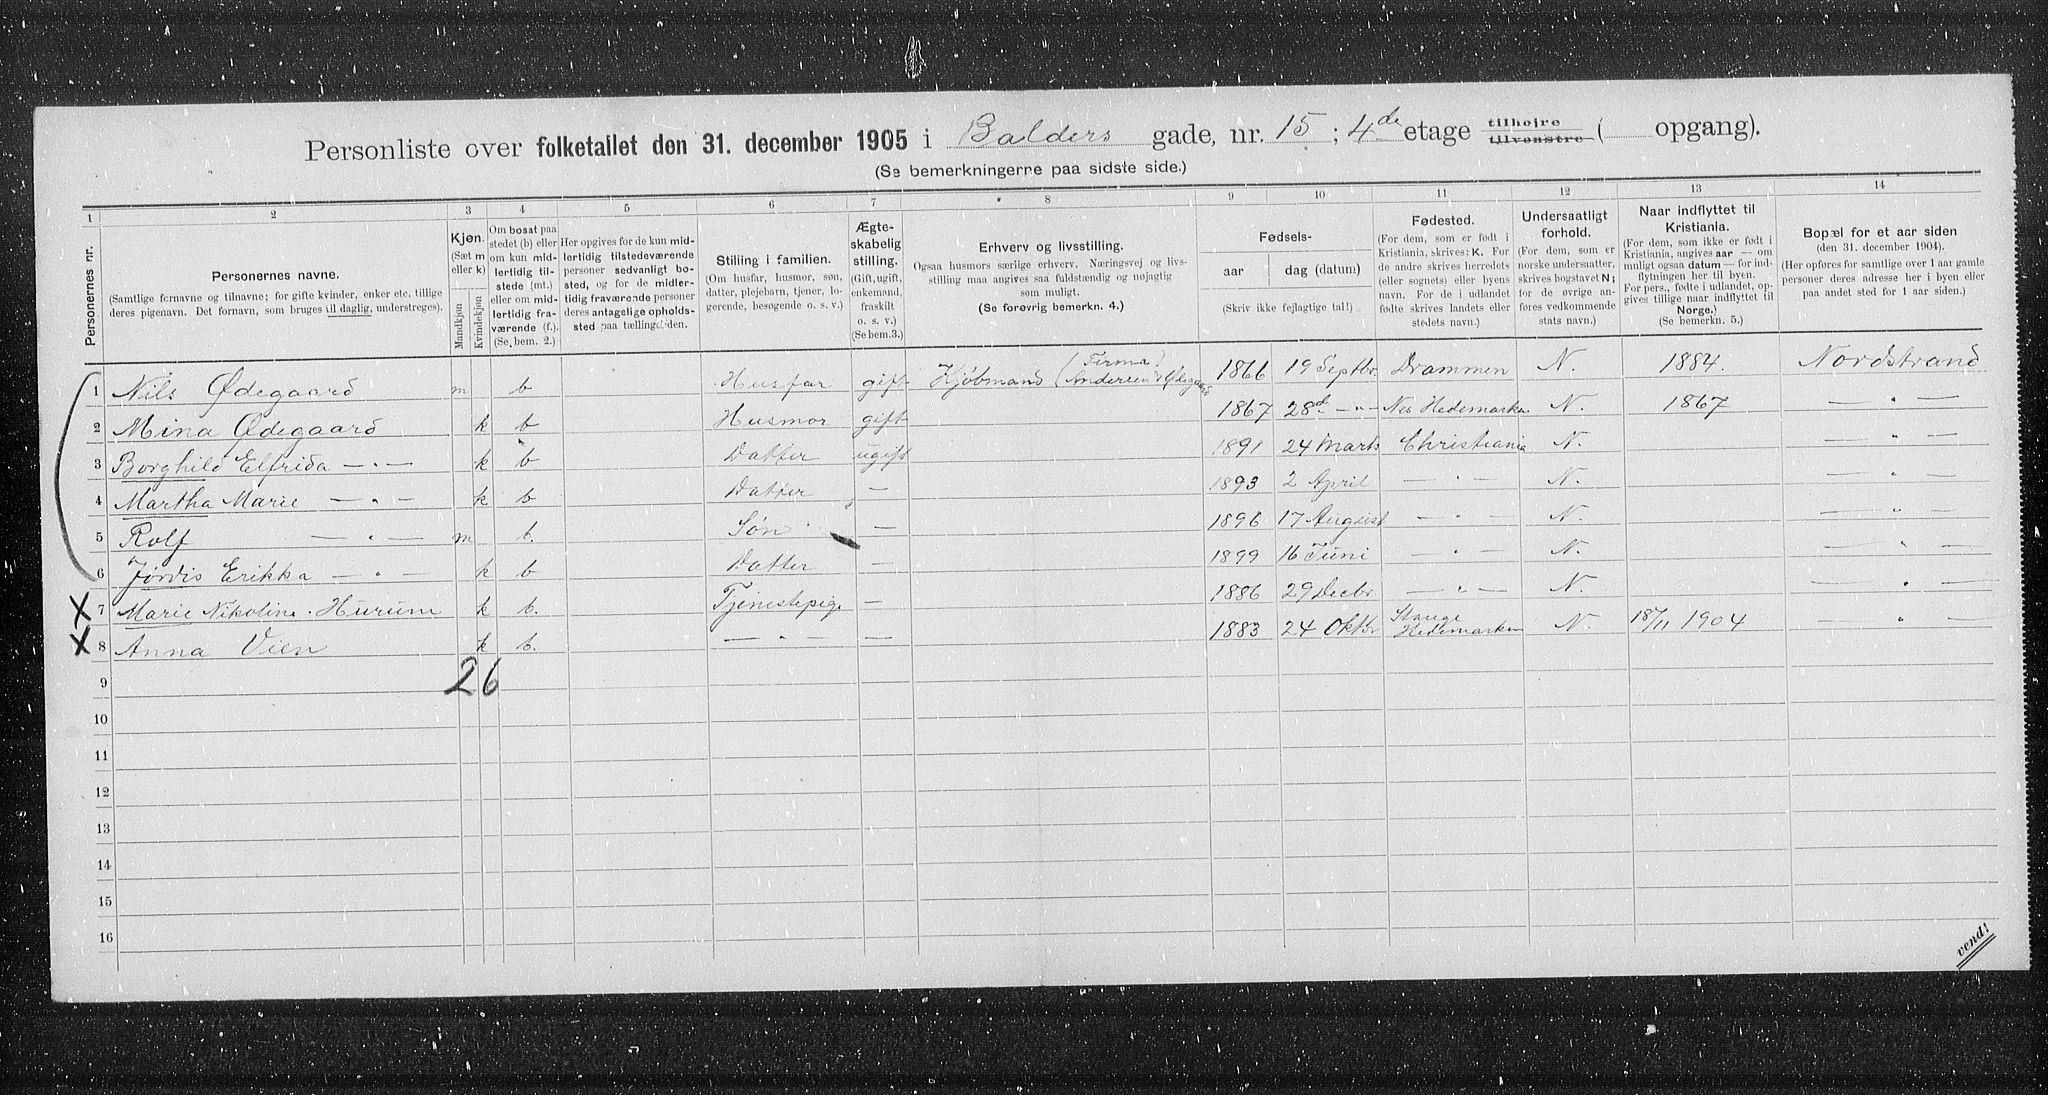 Personliste over folketallet den 31. december 1905 i Balders gade, nr. 15; 4de etage tilhøire tilvenstre ( opgang).
(Se bemerkningerne paa sidste side.)
1 2 3 4 5 6 7 8 9 10 11 12 13 14
Personernes nr.
Personernes navne.
(Samtlige fornavne og tilnavne; for gifte kvinder, enker etc. tillige
deres pigenavn. Det fornavn, som bruges til daglig, understreges).
Kjøn.
(Sæt m
eller k)
Mandkjøn
Kvindekjøn
Om bosat paa
stedet (b) eller
om kun mid-
lertidig til-
stede (mt.)
eller om mid-
lertidig fra-
værende (f.).
(Se bem. 2.)
Her opgives for de kun mid-
lertidig tilstedeværende
personer sedvanligt bo-
sted, og for de midler-
tidig fraværende personer
deres antagelige opholds-
sted paa tællingstiden.
Stilling i familien.
(Om husfar, husmor, søn,
datter, plejebarn, tjener, lo-
gerende, besøgende o. s. v.)
Ægte-
skabelig
stilling.
(Gift, ugift,
enkemand,
fraskilt
o. s. v.)
(Se bem.3.)
Erhverv og livsstilling.
Ogsaa husmors særlige erhverv. Næringsvej og livs-
stilling maa angives saa fuldstændig og nøjagtig
som muligt.
(Se forøvrig bemerkn. 4.)
Fødsels-
aar dag (datum)
(Skriv ikke fejlagtige tal!)
Fødested.
(For dem, som er født i
Kristiania, skrives: K. For
de andre skrives herredets
(eller sognets) eller byens
navn. For de i udlandet
fødte skrives landets eller
stedets navn.)
Undersaatligt
forhold.
(For dem, som er
norske undersaatter,
skrives bogstavet N;
for de øvrige an-
føres vedkommende
stats navn.)
Naar indflyttet til
Kristiania.
(For dem, som ikke er født i
Kristiania, angives aar — om
muligt ogsaa datum — for ind-
flytningen her til byen.
For pers., fødte i udlandet, op-
gives tillige naar indflyttet til
Norge.)
(Se bemerkn. 5.)
Bopæl for et aar siden
(den 31. december 1904).
(Her opføres for samtlige over 1 aar gamle
personer deres adresse her i byen eller
paa andet sted for 1 aar siden.)
1 Nils Ødegaard m b Husfar gift Kjøbmand (Firma Andersen & Ødegaard) 1866 19 Septbr. Drammen N. 1884. Nordstrand
2 Mina Ødegaard k b Husmor gift 1867 28de — " — Nes Hedemarken N. 1867 — " —
3 Borghild Elfrida — " — k b Datter ugift 1891 24 Marts Christiania N. — " —
4 Martha Marie — " — k b Datter — 1893 2 April — " — N. — " —
5 Rolf — " — m b. Søn — 1896 17 August — " — N. — " —
6 Jørdis Erikka — " — k b Datter — 1899 16 Juni — " — N. — " —
7 Marie Nikoline Hurum k b. Tjenestepige — 1886 29 Decbr — " — N. — " —
8 Anna Vien k b. — " — — 1883 24 Oktbr Stange Hedemarken N. 18/11 1904 — " —
9 26
10
11
12
13
14
15
16
vend!